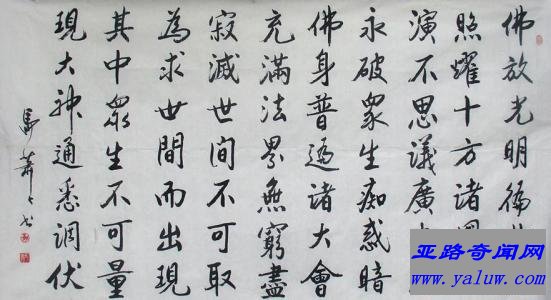 佛放光明徧
照耀十方諸國
演不思議廣
永破眾生痴惑暗
佛身普遍諸大會
充滿法界無窮盡
寂滅世間不可取
為求世間而出現
其中眾生不可量
現大神通悉調伏
馬蕭々书
亚路奇闻网
www.yaluw.com